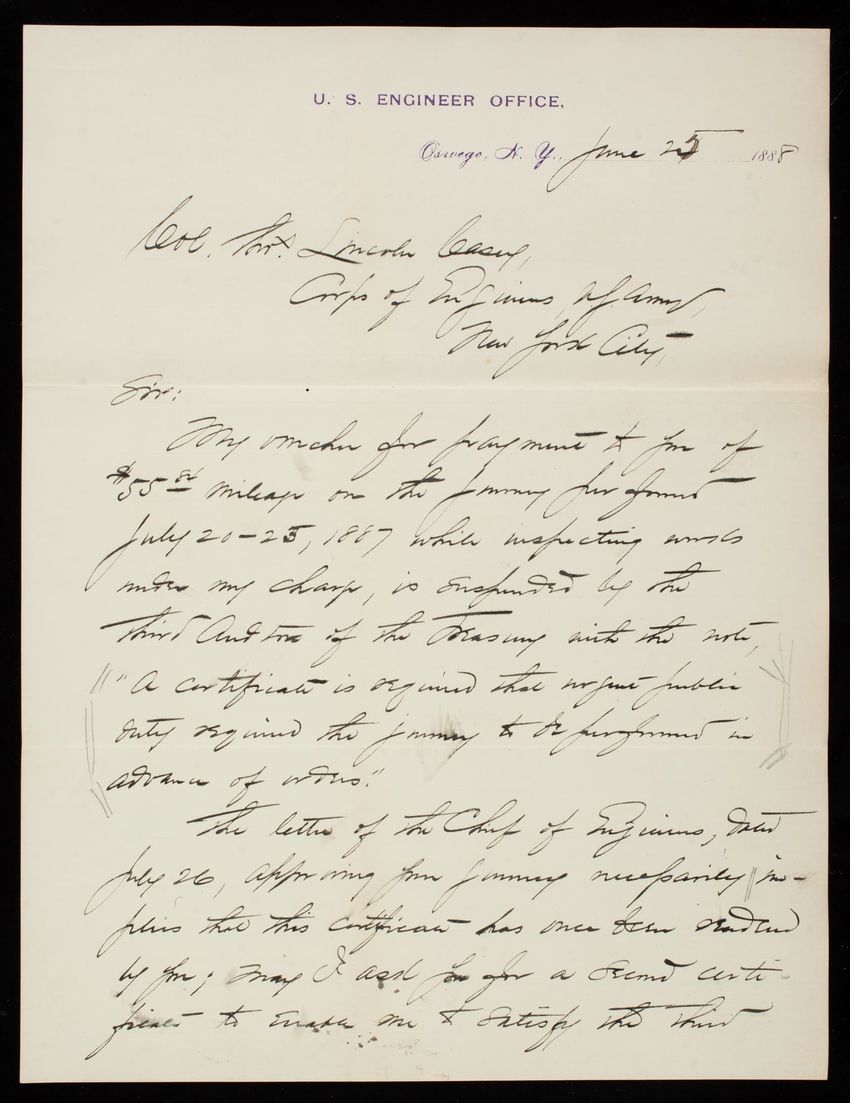 U. S. ENGINEER OFFICE,
Oswego, N. Y., June 25 1888
Col. Thos. Lincoln Casey,
Corps of Engineers, U.S. Army,
New York City,
Sir:
My voucher for payment to you of
$55 84 mileage on the journey performed
July 20-25, 1887 while inspecting works
under my charge, is suspended by the
Third Auditor of the Treasury with the note,
"A certificate is required that urgent public
duty required the journey to be performed in
advance of orders."
The letter of the Chief of Engineers, dated
July 26, approving your journey necessarily im-
plies that this certificate has once been rendered
by you; may I ask you for a second certi-
ficate to enable me to satisfy the Third